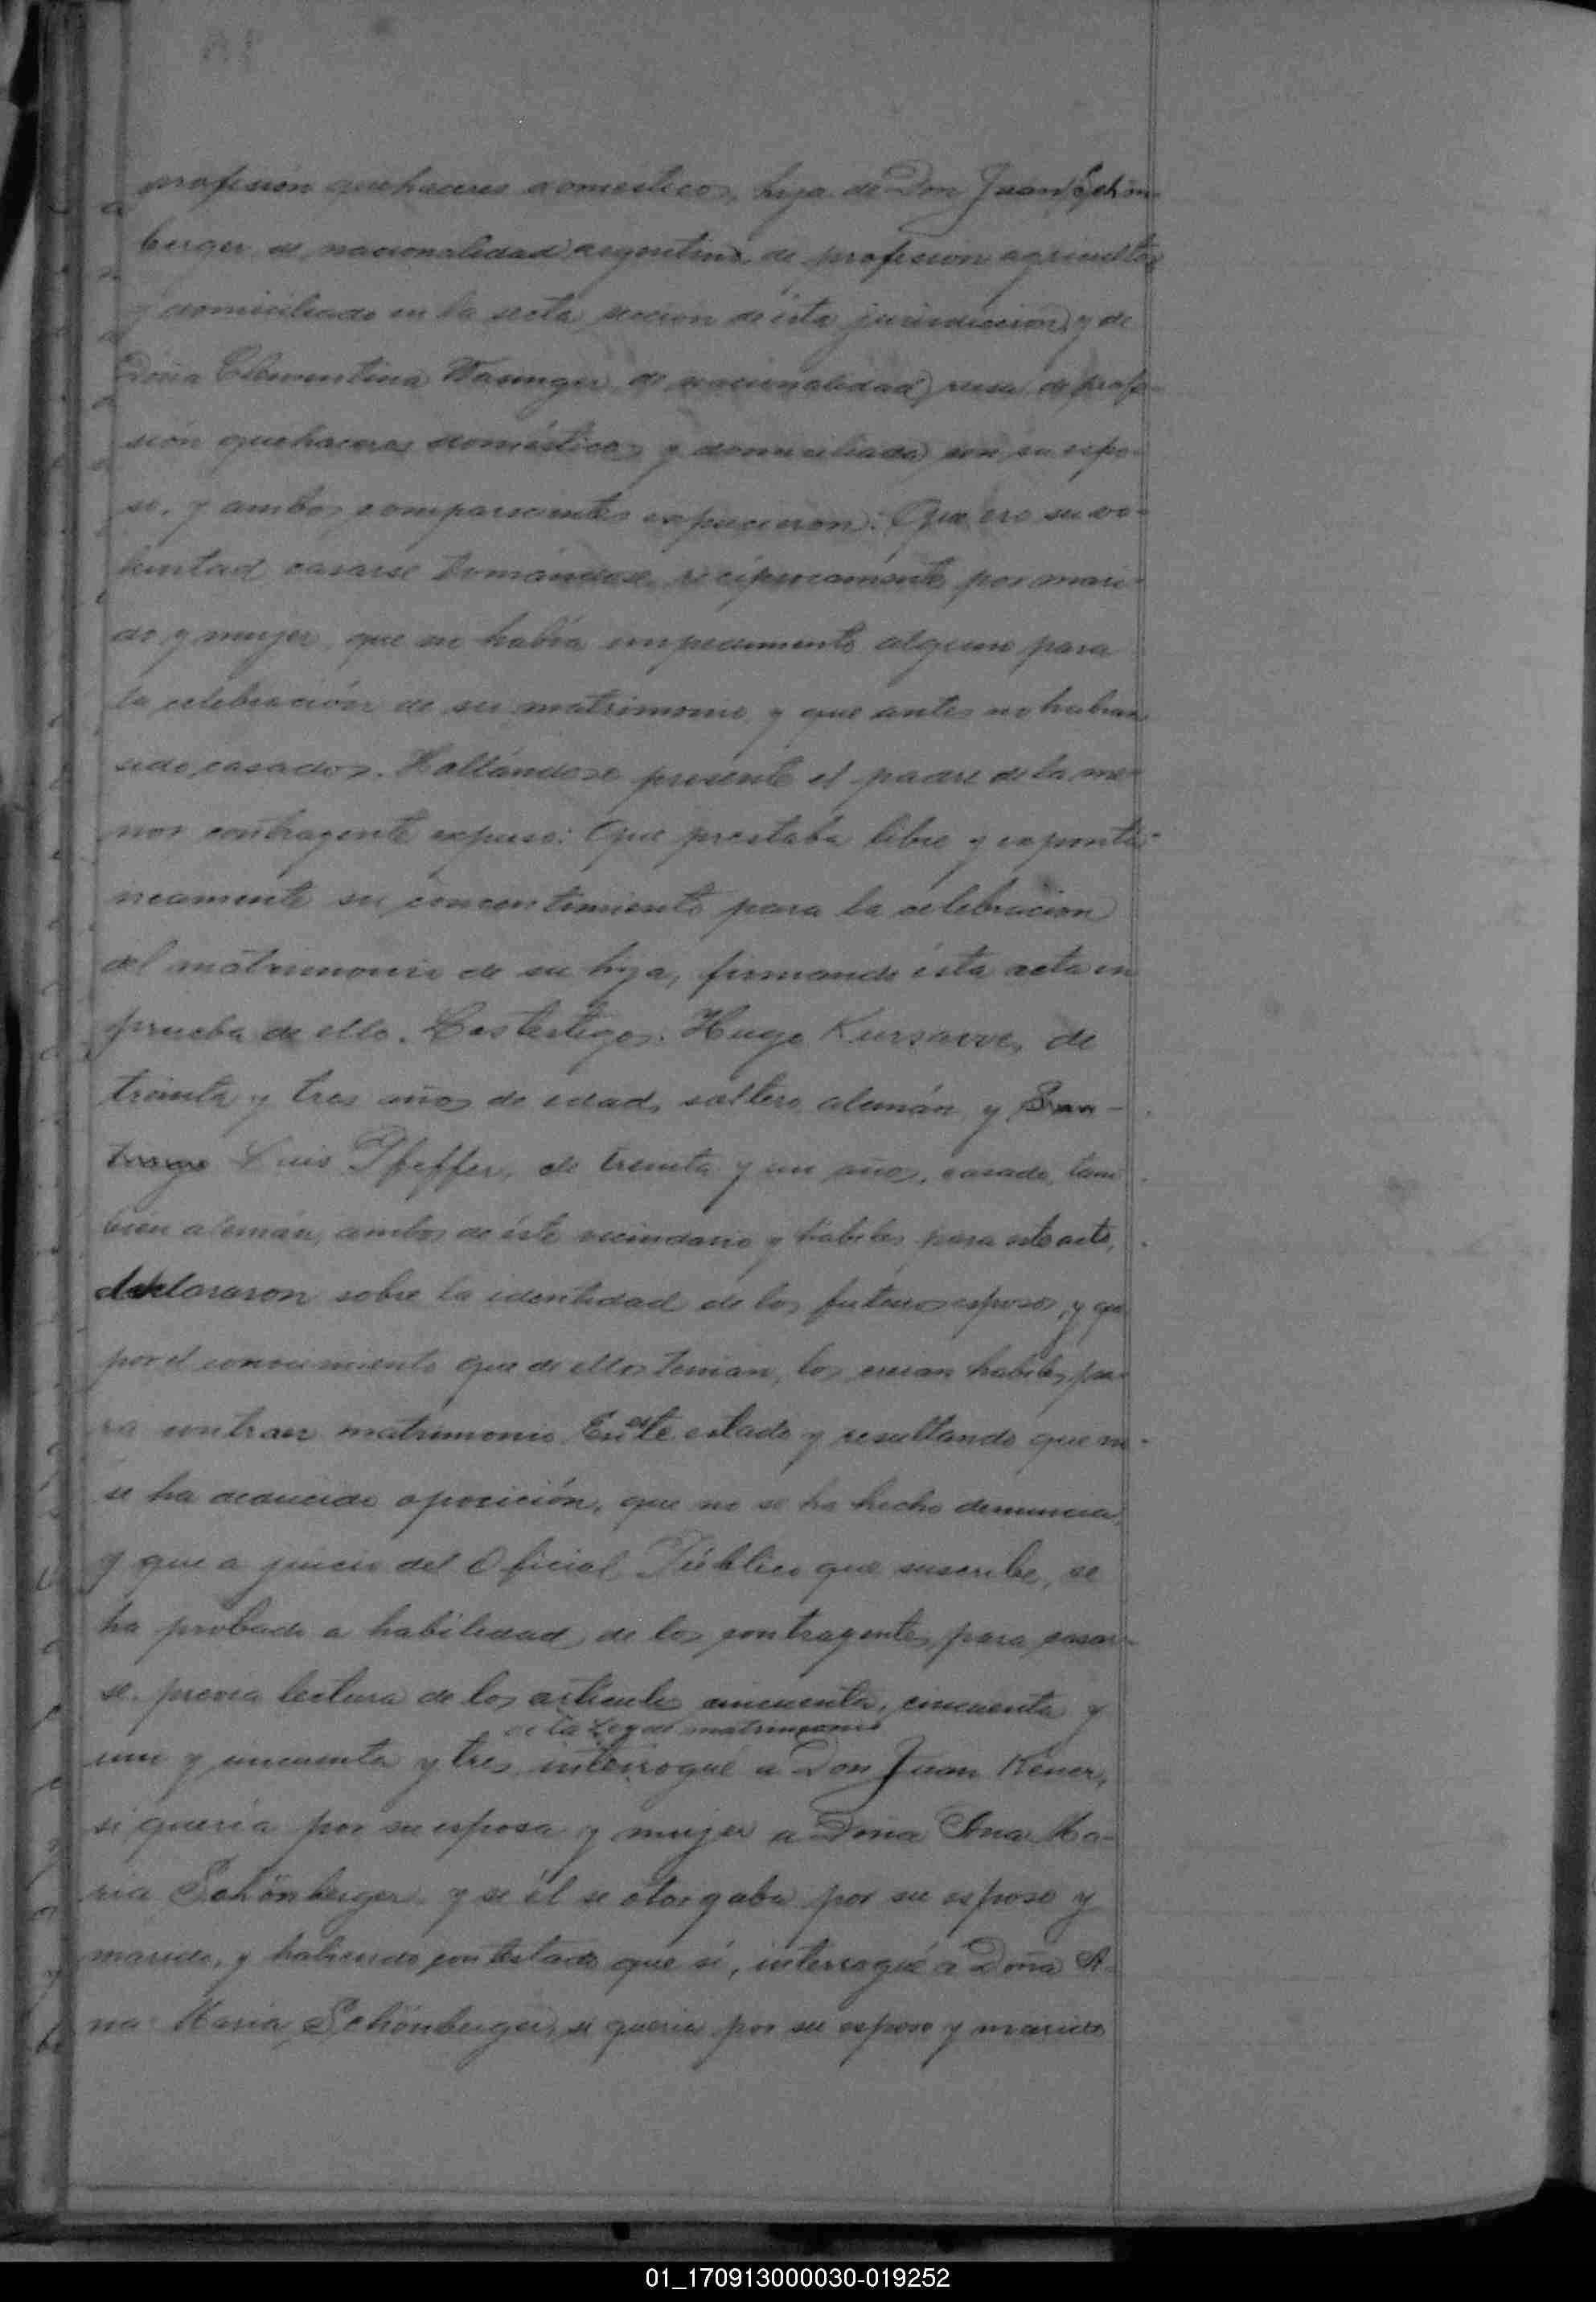 profesión quehaceres domesticos, hija de Don Juan Schön-
berger, de nacionalidad argentina, de profesion agricultor
y domiciliado en la sesta seccion de ésta jurisdiccion, y de
Doña Clementina Wasinger, de nacionalidad rusa, de profe-
sión quehaceres domésticos y domiciliada con su espo-
so, y ambos comparecientes expusieron: Que era su vo-
luntad casarse tomándose recíprocamente por mari-
do y mujer, que no había impedimento alguno para
la celebración de su matrimonio y que antes no habian
sido casados. Hallándose presente el padre de la me-
nor contrayente expuso: Que prestaba libre y espontá-
neamente su concentimiento para la celebracion
del matrimonio de su hija, firmando ésta acta en
prueba de ello. Los testigos: Hugo Kursawe, de
treinta y tres años de edad, soltero, alemán y San-
tiago Luis Pfeffer, de treinta y un años, casado, tam
bién alemán, ambos de éste vecindario y hábiles para este acto,
declararon sobre la identidad de los futuros esposos, y que
por el conocimiento que de ellos tenian, los creian habiles pa-
ra contraer matrimonio. En este estado y resultando que no
se ha deducido oposición, que no se ha hecho denuncia,
y que a juicio del Oficial Público que suscribe, se
ha probado a habilidad de los contrayentes para casar-
se, previa lectura de los articulos cincuenta, cincuenta y
de la Ley de matrimonio
uno y cincuenta y tres interrogué a Don Juan Kener,
si quería por su esposa y mujer a Doña Ana Ma-
ria Schönberger y si él se otorgaba por su esposo y
marido, y habiendo contestado que si, interrogué a Doña A-
na Maria Schönberger, si queria por su esposo y marido
01_170913000030-019252